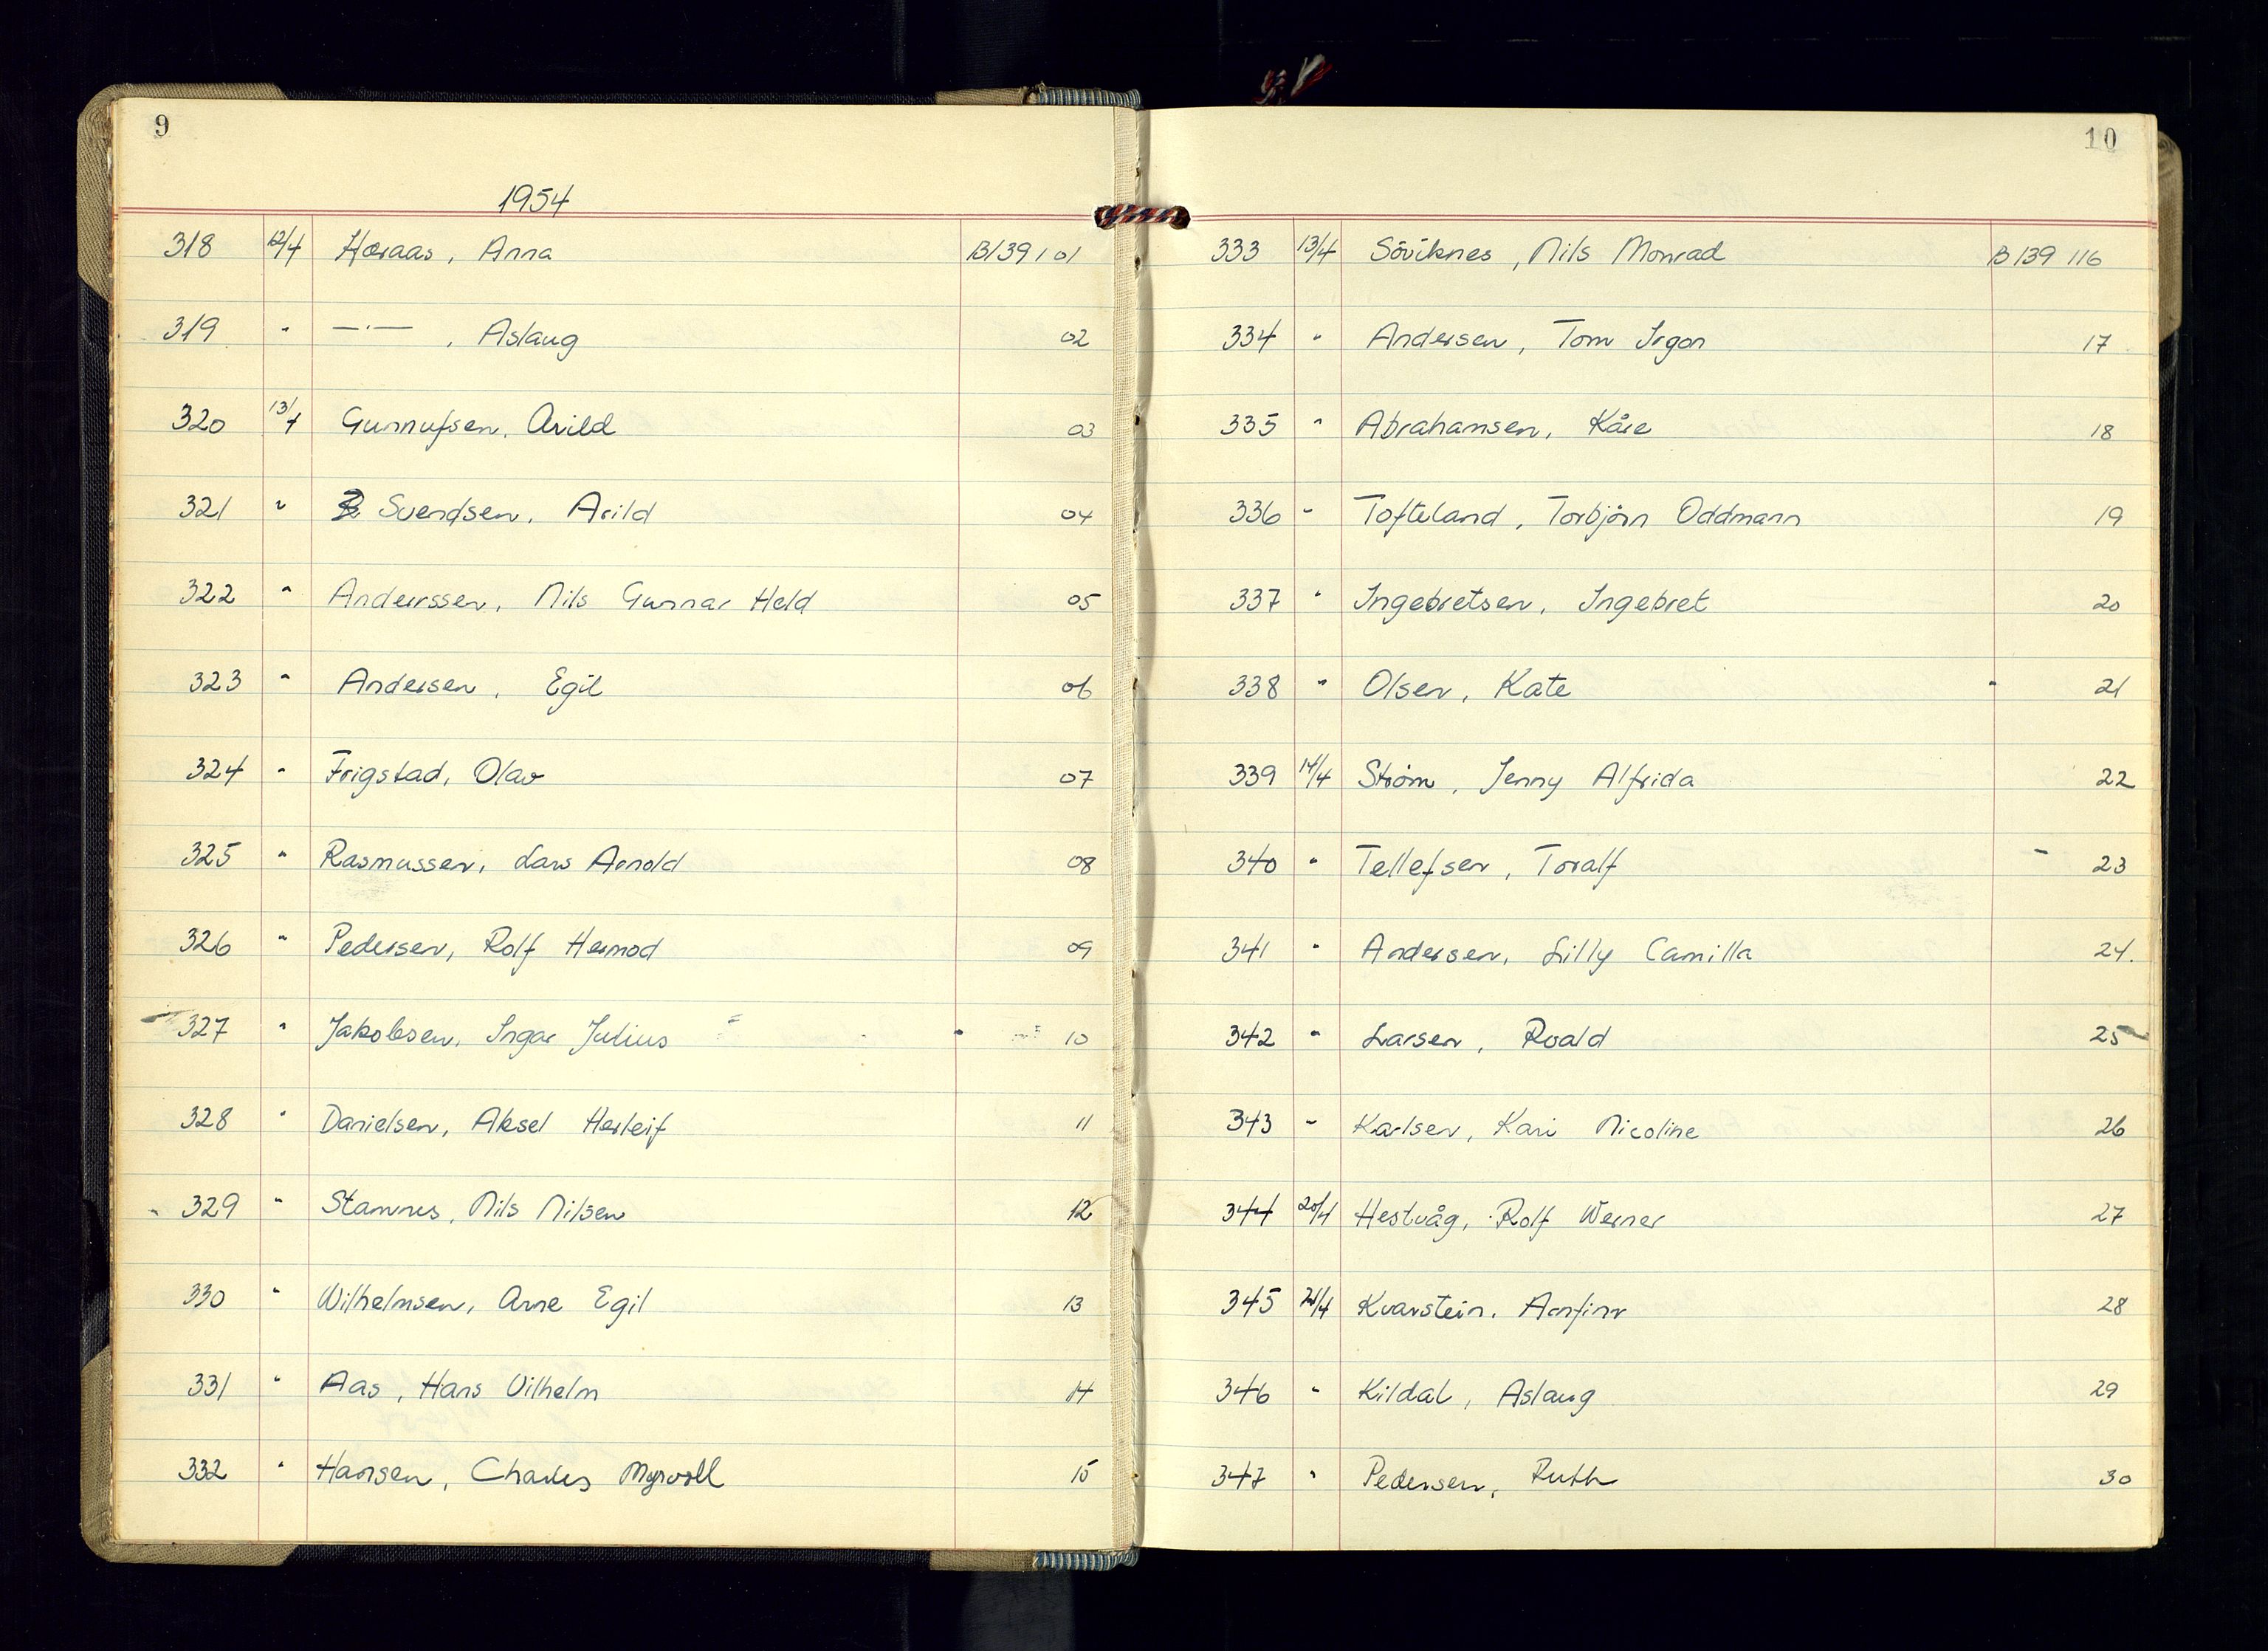 9
1954
318 12/4 Høraas, Anna B139101
319 " —"— , Aslaug 02
320 13/4 Gunnufsen, Arild 03
321 " Svendsen, Arild 04
322 " Anderssen, Nils Gunnar Held 05
323 " Andersen, Egil 06
324 " Frigstad, Olav 07
325 " Rasmussen, Lars Arnold 08
326 " Pedersen, Rolf Hermod 09
327 " Jakobsen, Ingar Julius 10
328 " Danielsen, Aksel Herleif 11
329 " Stamnes, Nils Nilsen 12
330 " Wilhelmsen, Arne Egil 13
331 " Aas, Hans Vilhelm 14
332 " Hansen, Charles Myrvoll 15
10
333 13/4 Söviknes, Nils Monrad B139 116
334 " Andersen, Tom 17
335 " Abrahamsen, Kåre 18
336 " Tofteland, Torbjörn Oddmann 19
337 " Ingebretsen, Ingebret 20
338 " Olsen, Kate 21
339 14/4 Strøm, Jenny Alfrida 22
340 " Tellefsen, Toralf 23
341 " Andersen, Lilly Camilla 24.
342 " Larsen, Roald 25
343 " Karlsen, Kari Nicoline 26
344 20/4 Hestvåg, Rolf Werner 27
345 21/4 Kvarstein, Arnfinn 28
346 " Kildal, Aslaug 29
347 " Pedersen, Ruth 30